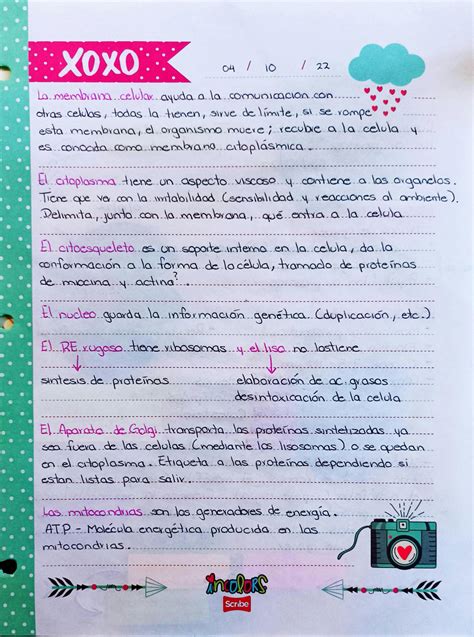 XOXO
04 / 10 / 22
La membrana celular ayuda a la comunicación con
otras celulas, todas la tienen, sirve de límite, si se rompe
esta membrana, el organismo muere; recubre a la celula y
es conocida como membrana citoplásmica.
El citoplasma tiene un aspecto viscoso y contiene a los organelos.
Tiene que ver con la irritabilidad (sensibilidad y reacciones al ambiente).
Delimita, junto con la membrana, qué entra a la celula
El citoesqueleto es un soporte interno en la celula, da la
conformación a la forma de la célula, tramado de proteínas
de miocina y actina?.
El nucleo guarda la información genética (duplicación, etc.)
El RE rugoso tiene ribosomas y el liso no los tiene
sintesis de proteínas
elaboración de ac. grasos
desintoxicación de la celula
El Aparato de Golgi transporta las proteínas sintetizadas ya
sea fuera de las celulas (mediante los lisosomas) o se quedan
en el citoplasma. Etiqueta a las proteínas dependiendo si
estan listas para salir.
Las mitocondrias son los generadores de energía.
ATP - Molécula energética producida en las
mitocondrias.
incolors
Scribe